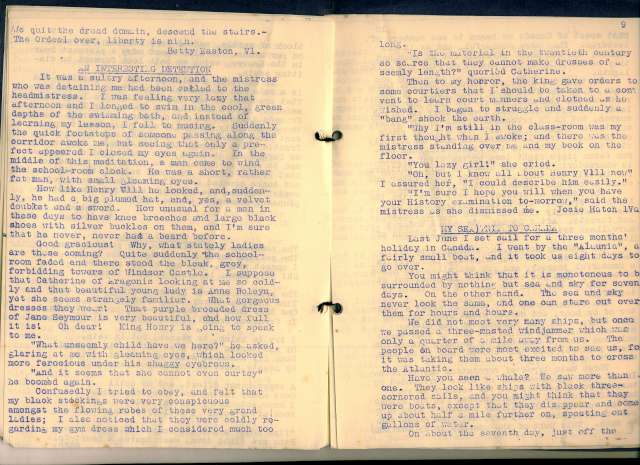 We quit the dread domain, descend the stairs.-
The Ordeal over, liberty is nigh.
Betty Easton, VI.
AN INTERESTING DETENTION
It was a sultry afternoon, and the mistress
who was detaining me had been called to the
headmistress. I was feeling very lazy that
afternoon and I longed to swim in the cool, green
depths of the swimming bath, and instead of
learning my lesson, I fell to musing. Suddenly
the quick footsteps of someone passing along the
corridor awoke me, but seeing that only a pre-
fect appeared I closed my eyes again. In the
middle of this meditation, a man came to wind
the school-room clock. He was a short, rather
fat man, with small gleaming eyes.
How like Henry VIII he looked, and, sudden-
ly, he had a big plumed hat, and, yes, a velvet
doublet and a sword. How unusual for a man in
these days to have knee breeches and large black
shoes with silver buckles on them, and I'm sure
that he never, never had a beard before!
Good gracious! Why, what stately ladies
are these coming? Quite suddenly the school-
room faded and there stood the bleak, grey,
forbidding towers of Windsor Castle. I suppose
that Catherine of Aragon is looking at me so cold-
ly and that beautiful young lady is Anne Boleyn,
yet she seems strangely familiar. What gorgeous
dresses they wear! That purple brocaded dress
of Jane Seymour is very beautiful, and how full
it is! Oh dear! King Henry is going to speak
to me.
"What unseemly child have we here?" he asked,
glaring at me with gleaming eyes, which looked
more ferocious under his shaggy eyebrows.
"And it seems that she cannot even curtsy"
he boomed again.
Confusedly I tried to obey, and felt that
my black stockings were very conspicuous
amongst the flowing robes of these very grand
ladies; I also noticed that they were coldly re-
garding my gym dress which I considered much too
9
long.
"Is the material in the twentieth century
so scarce that they cannot make dresses of a
seemly length?" queried Catherine.
Then to my horror, the king gave orders to
some courtiers that I should be taken to a con
vent to learn court manners and clothed as he
wished. I began to struggle and suddenly a
"bang" shook the earth.
"Why I'm still in the class-room was my
first thought when I awoke; and there was the
mistress standing over me and my book on the
floor.
"You lazy girl!" she cried.
"Oh, but I know all about Henry VIII now"
I assured her, "I could describe him easily."
"I'm sure I hope you will when you have
your History examination to-morrow," said the
mistress as she dismissed me. Josie Haton
MY SEA TO CANADA
Last June I set sail for a three months'
holiday in Canada. I went by the "Alaunia", a
fairly small boat, and it took us eight days to
go over.
You might think that it is monotonous to be
surrounded by nothing but sea and sky for seven
days. On the other hand. The sea and sky
never look the same, and one can stare out over
them for hours and hours.
We did not meet very many ships, but once
we passed a three-masted windjammer which was
only a quarter of a mile away from us. The
people on board were most excited to see us, fo
it was taking them about three months to cross
the Atlantic.
Have you seen a whale? We saw more than
one. They look like ships with black three-
cornered sails, and you might think that they
were boats, except that they disappear and come
up about half a mile further on, spouting out
gallons of water.
On about the seventh day, just off the